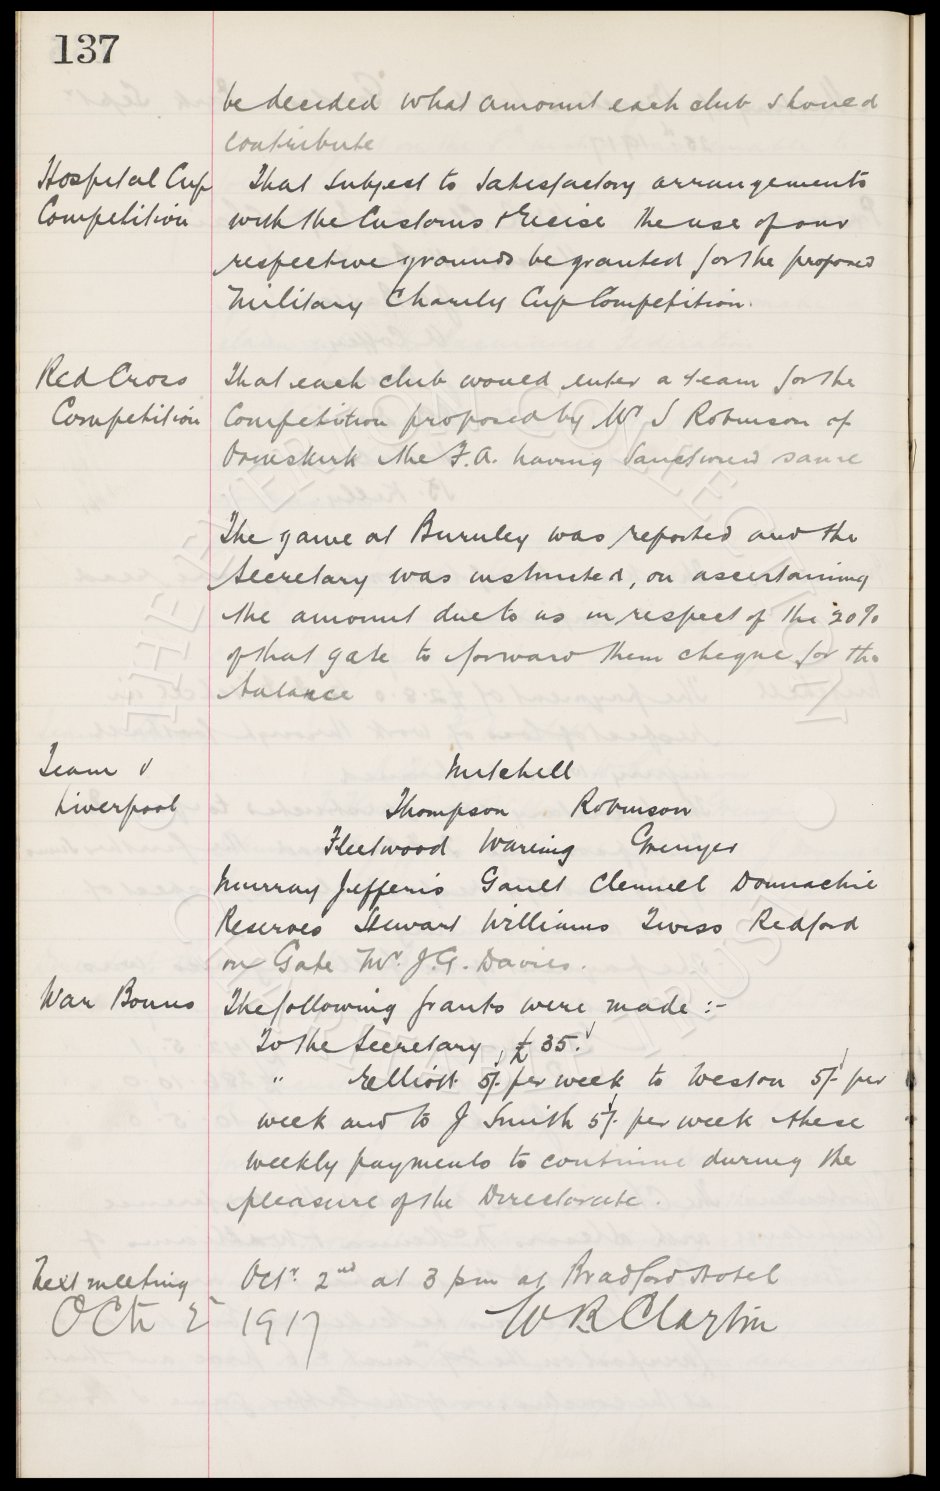 137
be decided what amount each club should
contribute
Hospital Cup
Competition
That subject to satisfactory arrangements
with the Customs & Excise the use of our
respective grounds be granted for the proposed
Military Charity Cup Competition.
Red Cross
Competition
That each club would enter a team for the
Competition proposed by Mr J Robinson of
Ormskirk the F.A. having sanctioned same
The game at Burnley was reported and the
Secretary was instructed, on ascertaining
the amount due to us in respect of the 20%
of that gate to forward them cheque for the
balance
Team v
Liverpool
Mitchell
Thompson Robinson
Fleetwood Wareing Grenyer
Murray Jefferis Gault Clennell Donnachie
Reserves Stewart Williams Twiss Redford
on Gate Mr. J.G. Davies.
War Bonus
The following grants were made :-
To the Secretary, £35.
" Elliott 5/- per week to Weston 5/- per
week and to J Smith 5/- per week these
weekly payments to continue during the
pleasure of the Directorate.
Next meeting
Octr. 2nd at 3 pm at Bradford Hotel
Oct 2 1917
W R Clayton
THE EVERTON COLLECTION